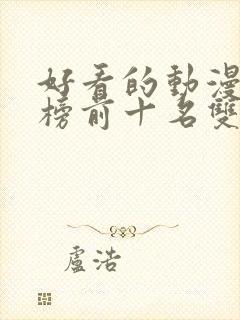 好看的動漫
榜前十名雙
盧浩